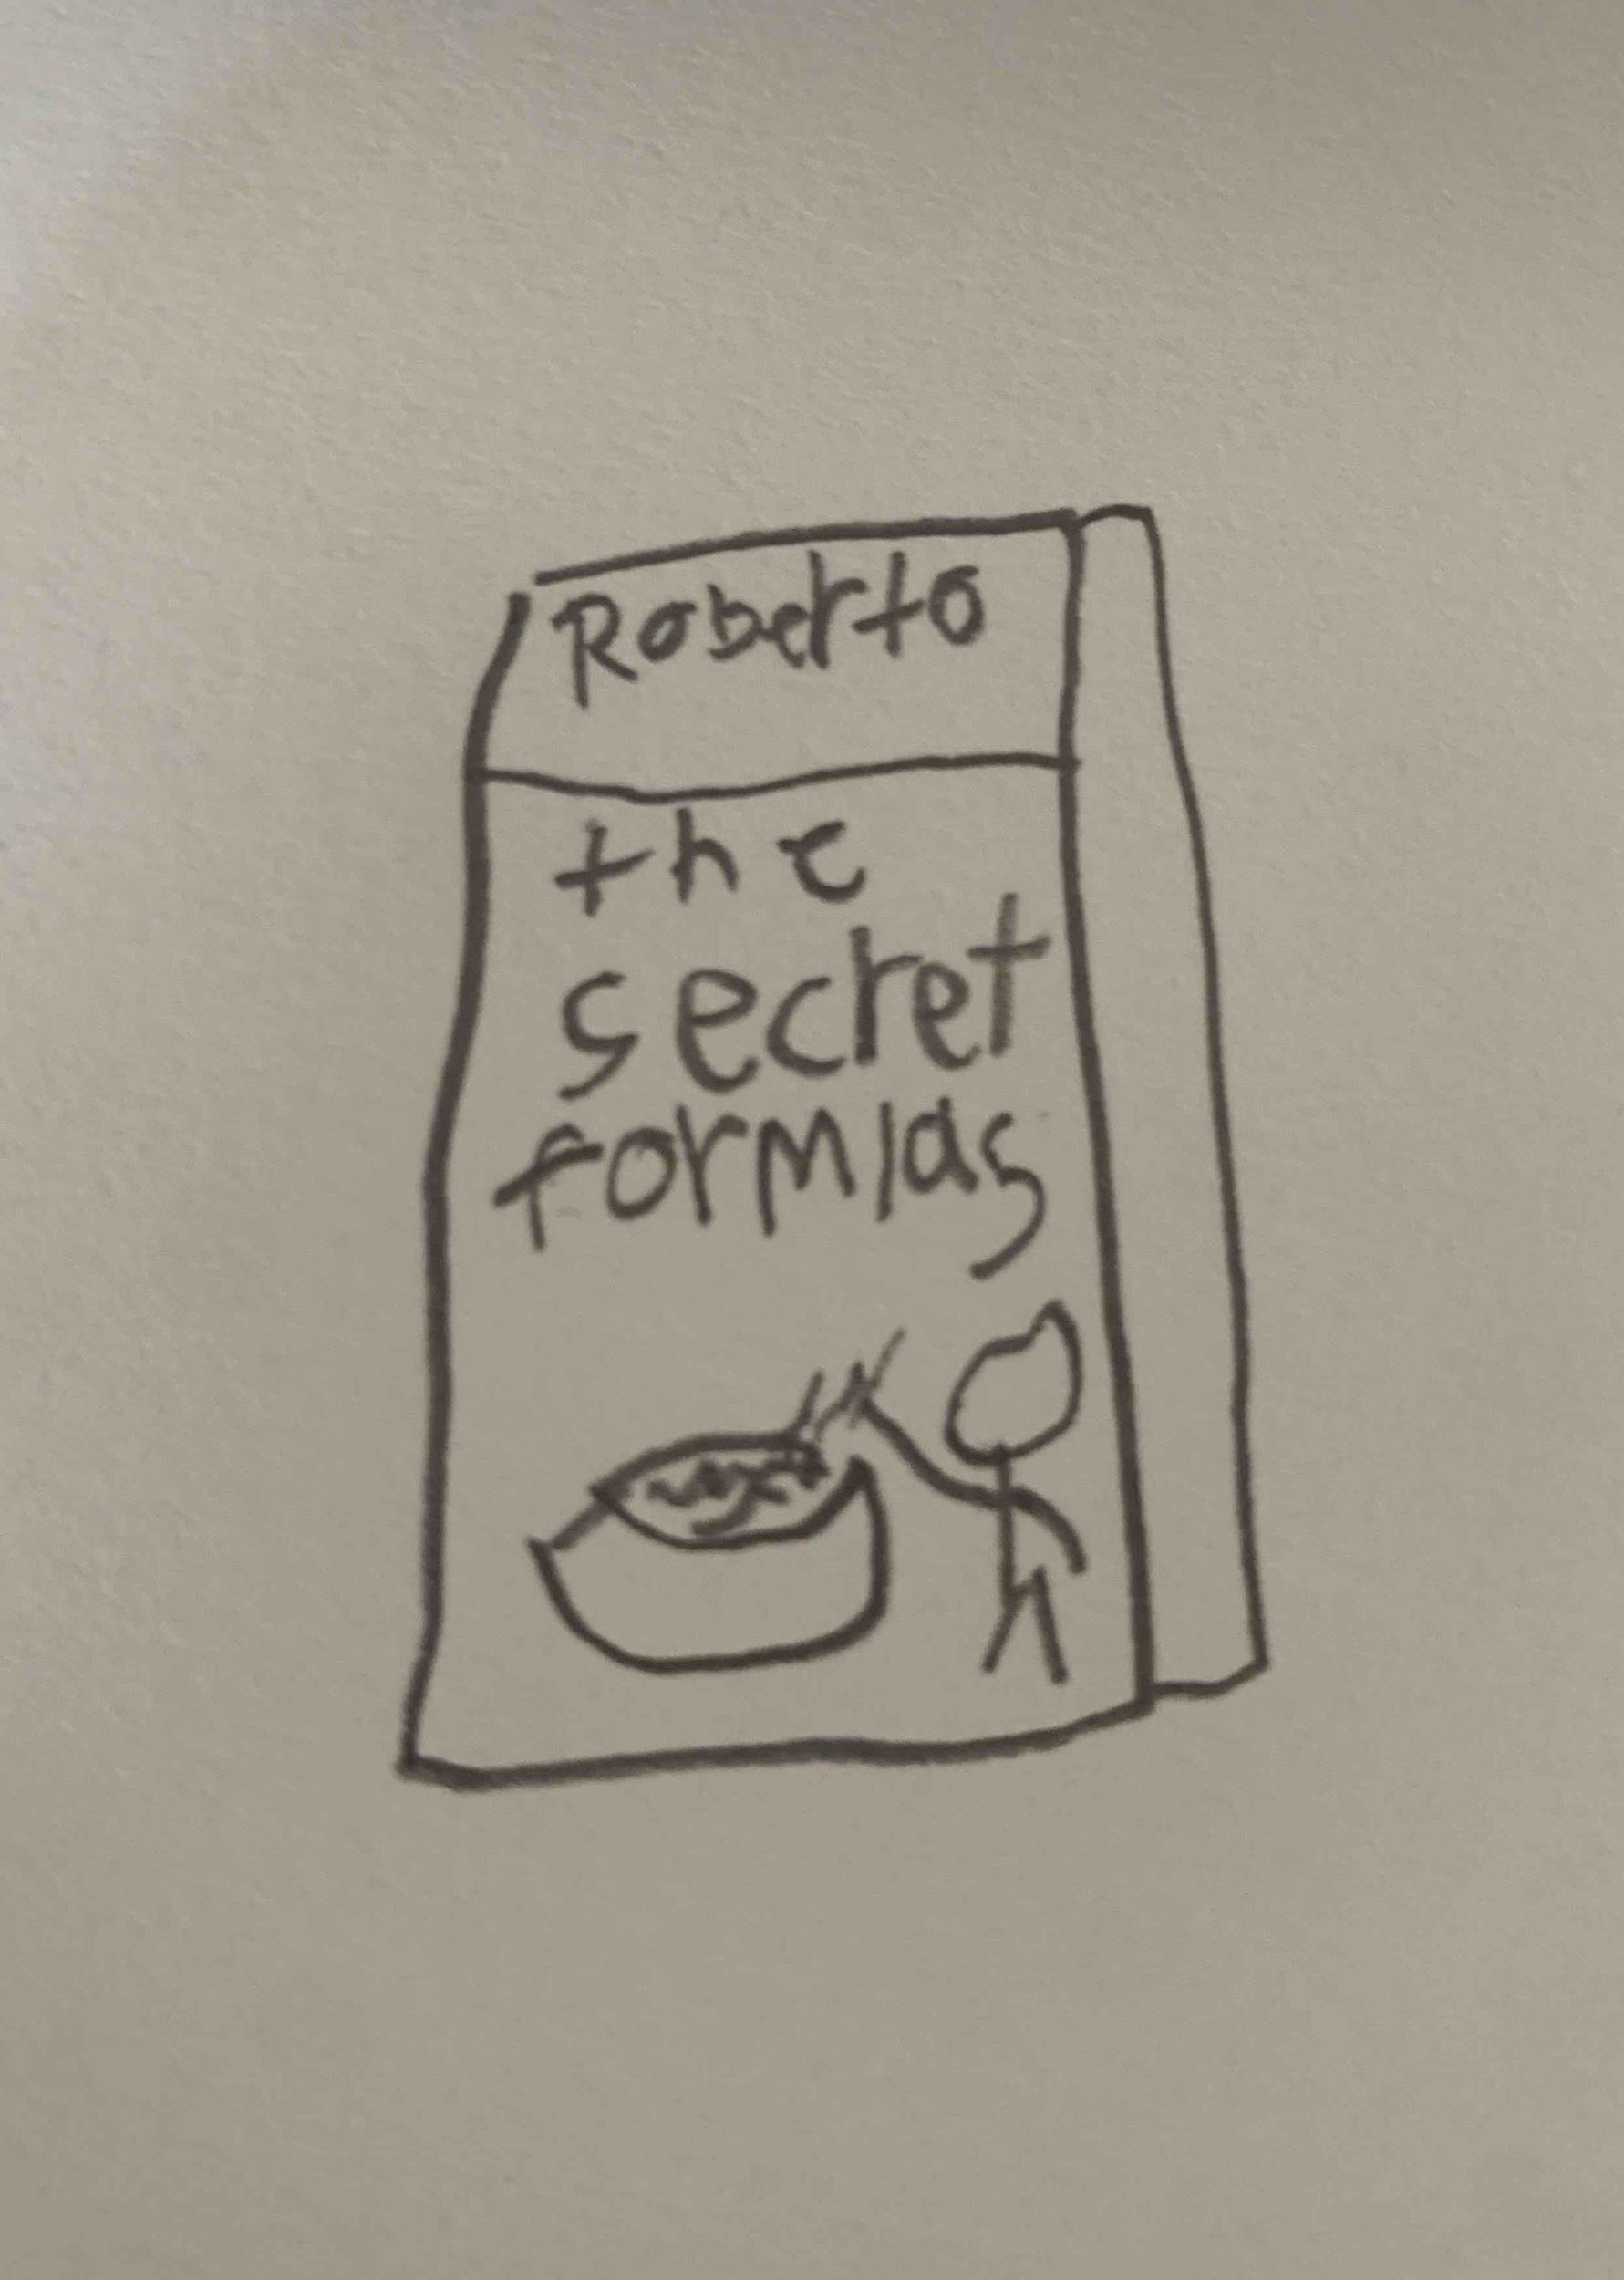 Roberto
the
secret
formlas